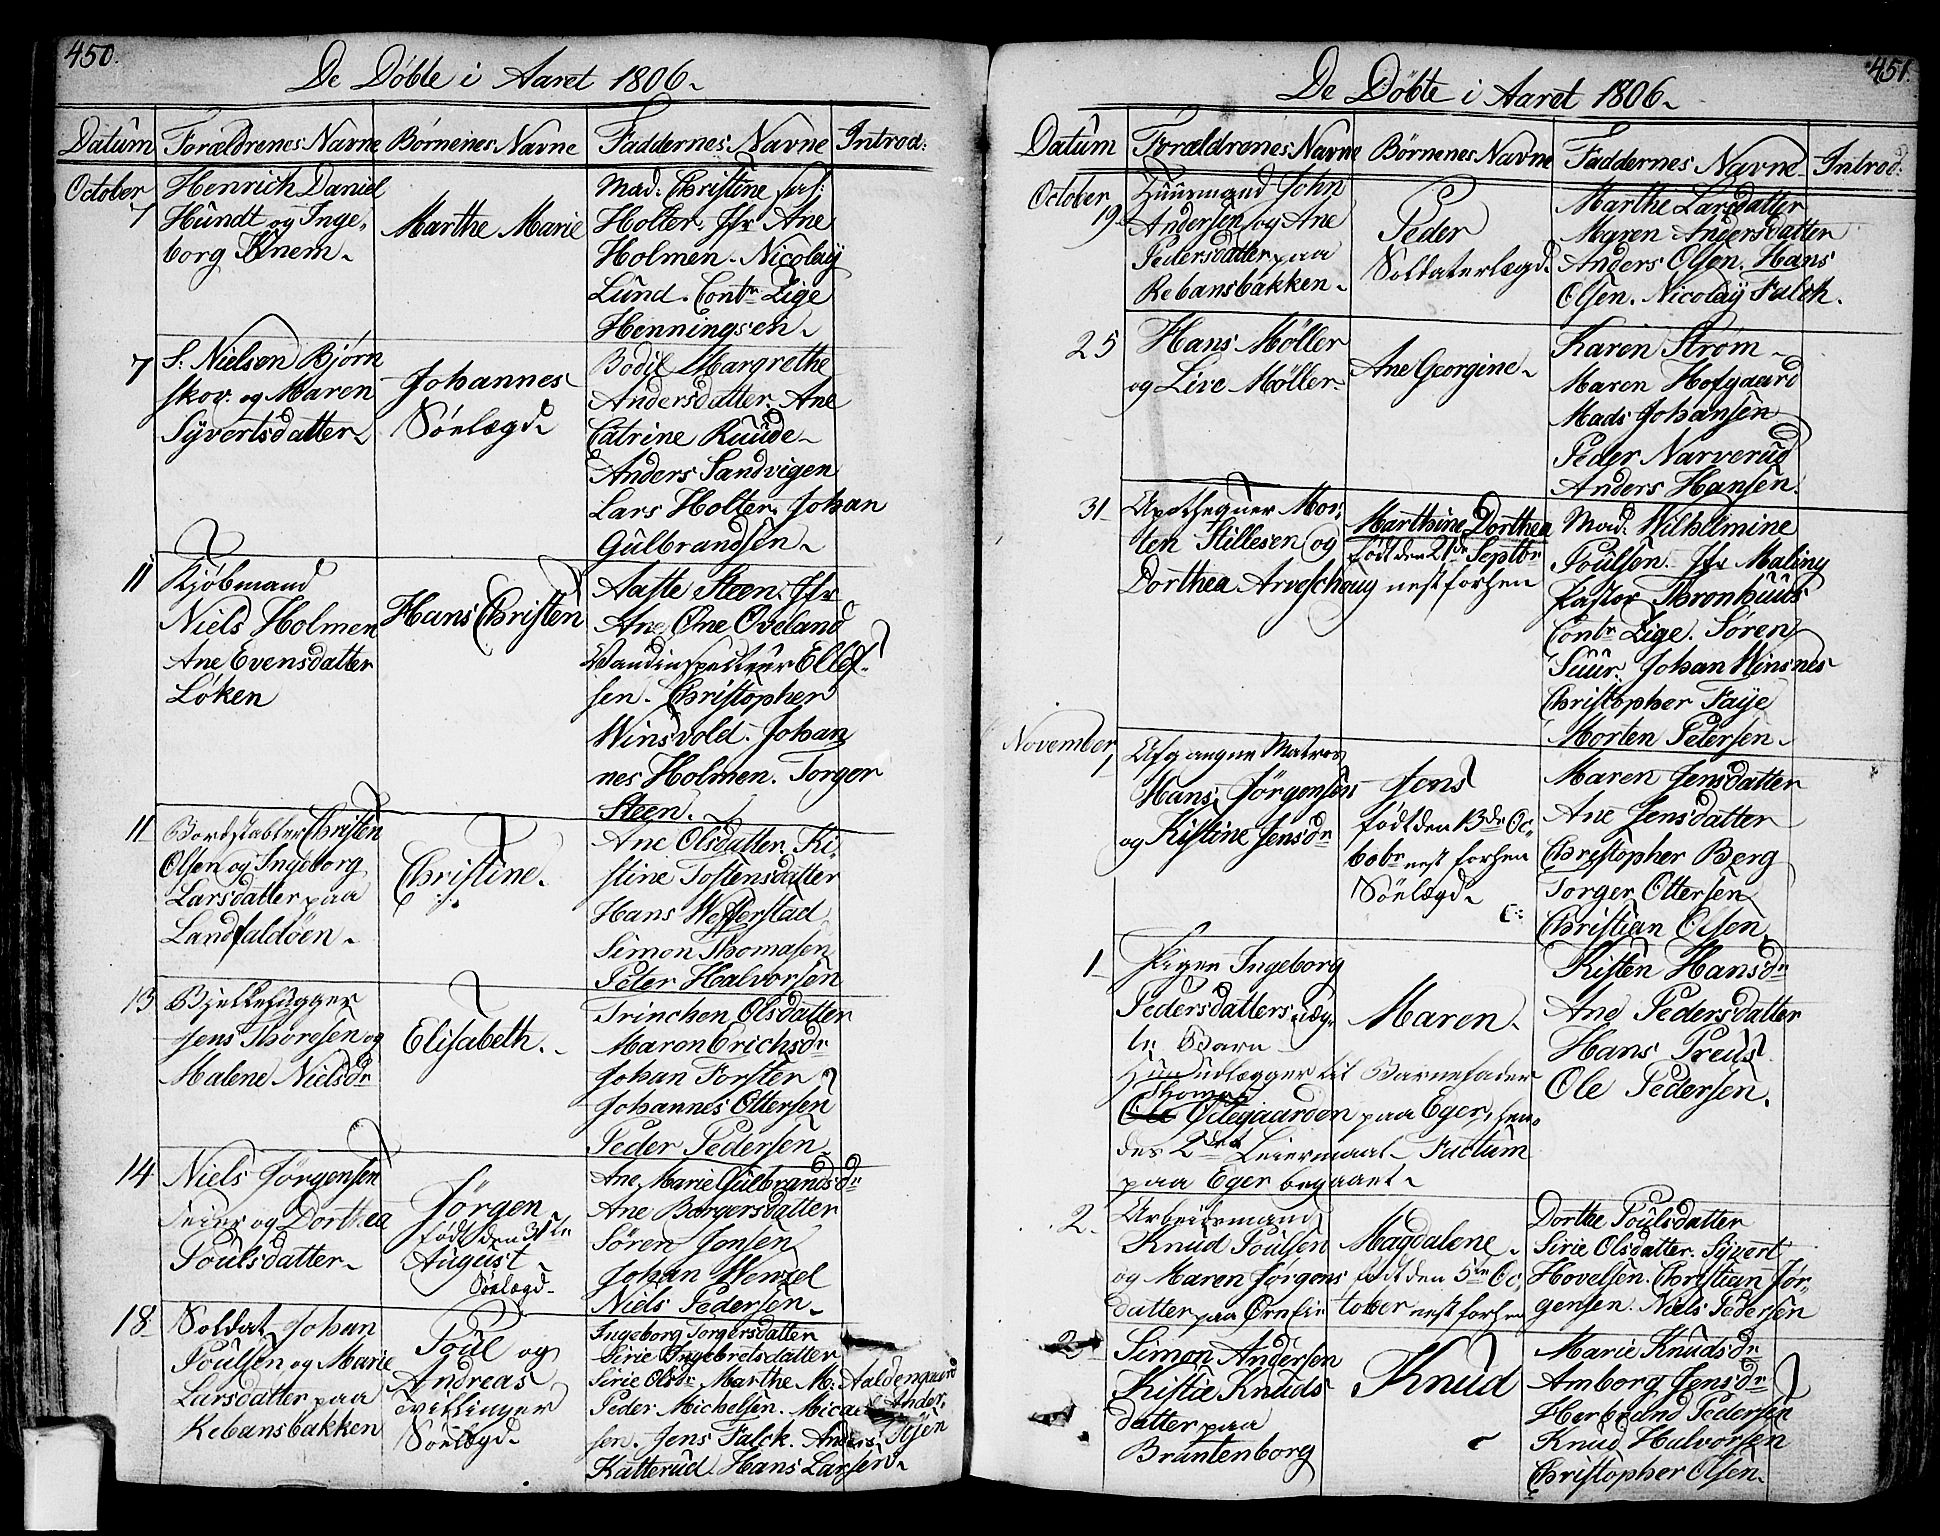 450.
De Döbte i Aaret 1806.
Datum Forældrenes Navne Børnenes Navne Faddernes Navne Introd:
October
7
Henrich Daniel
Hundt og Inge-
borg Knem.
Marthe Marie
Mad. Christine sal:
Holter. Jfr Ane
Holmen. Nicolaÿ
Lund. Contr. Lige
Henningsen.
7
S. Nielsen Bjørn
skov. og Maren
Sÿvertsdatter.
Johannes
Söelægd.
Bodil Margrethe
Andersdatter. Ane
Catrine Ruude.
Anders Sandvigen
Lars Holter. Johan
Gulbrandsen.
11
Kjøbmand
Niels Holmen
Ane Evensdatter
Løken
Hans Christen
Aaste Steen. Jfr
Ane One Oveland
Vandinspecteur Ellef-
sen. Christopher
Winsvold. Johan
nes Holmen. Torger
Steen.
11
Bordstabler Christen
Olsen og Ingeborg
Larsdatter paa
Landfaldöen.
Christine.
Ane Olsdatter. Ki-
stine Tostensdatter
Hans Wefferstad
Simon Thomasen
Peter Halvorsen
13
Bjelkehugger
Jens Thoresen og
Malene Nielsdr
Elisabeth.
Trinchen Olsdatter
Maren Erichsdr
Johan Forsten
Johannes Ottersen
Peder Pedersen
14
Niels Jörgensen
og Dorthea
Poulsdatter.
Jörgen
født den 31te
August
Söelægd.
Ane Marie Gulbrandsdr
Ane Borgersdatter
Sören Jensen
Johan Wenzel
Niels Pedersen.
18
Soldat Johan
Poulsen og Marie
Larsdatter paa
Rebansbakken
Poul og
Andreas
Tvillinger
Söelægd.
Ingeborg Torgersdatter
Sirie Ingebretsdatter
Sirie Olsdr Marthe M. Aaldengaard
Peder Michelsen. Micael Ander-
sen. Jens Falck. Anders Töjen
Katterud. Hans Larsen.
451.
De Döbte i Aaret 1806.
Datum Forældrenes Navne Børnenes Navne Faddernes Navne Introd:
October
19.
Huusmand John
Andersen og Ane
Pedersdatter paa
Rebansbakken.
Peder
Soldaterlægd.
Marthe Larsdatter
Maren Andersdatter
Anders Olsen. Hans
Olsen. Nicolaÿ Falch.
25
Hans Möller
og Live Möller.
Ane Georgine.
Karen Strøm
Maren Hofgaard
Mads Johansen
Peder Narverud
Anders Hansen.
31
Apothequer Mor-
ten Hillesen og
Dorthea Arveschoug
Marthine Dorthea
født den 21de Septbr
nest forhen
Mad. Wilhelmine
Poulsen. Jfr Maling
Pastor Thronhuus
Contr. Lige. Sören
Suur. Johan Winsnes
Christopher Faÿe
Morten Petersen.
November
1
Afgangne Matros
Hans Jörgensen
og Kistine Jensdr
Jens
født den 13de Oc-
tobr nest forhen
Söelægd.
Maren Jensdatter
Ane Jensdatter
Christopher Berg
Torger Ottersen
Christian Olsen
1
Pigen Ingeborg
Pedersdatters uæg-
te Barn
Hun udlægger til Barnefader
Thomas
Ole Odegaarden paa Eger, hen-
des 2det Leiermaal. Factum
paa Eger begaaet.
Maren.
Kisten Hansdr
Ane Pedersdatter
Hans Preus
Ole Pedersen.
2.
Arbeidsmand
Knud Poulsen
og Maren Jörgens
datter paa Ørnfie
Magdalene
født den 5te Oc-
tober nest forhen
Dorthe Poulsdatter
Sirie Olsdatter. Sÿvert
Hovelsen. Christian Jör-
gensen. Niels Pedersen
2
Simon Andersen
Kistie Knuds
datter paa
Brantenborg
Knud
Marie Knudsdr
Amborg Jensdr
Herbrand Pedersen
Knud Halvorsen
Christopher Olsen.